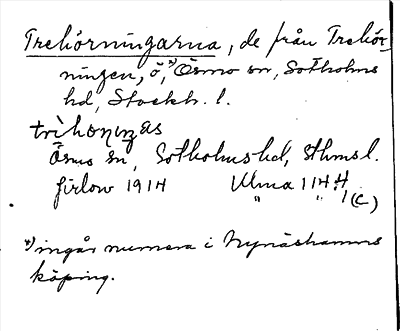 Trehörningarna, de från Trehör-
ningen, ö,*) Ösmo sn, Sotholms
hd, Stockh. l.
trihöningas
Ösmo sn, Sotholms hd, Sthms l.
1914 Ulma 114:4,
" " 1(C)
*) ingår numera i Nynäshamns
köping.